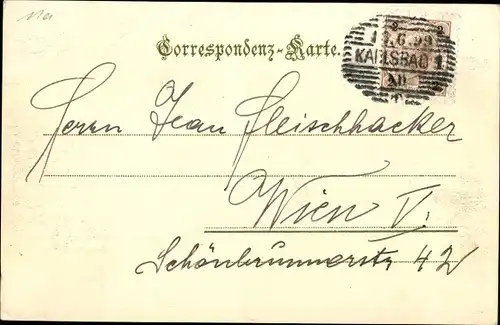 Correspondenz-Karte.
2 2
12.6.99
KARLSBAD 1
XII
Herrn Jean Fleischhacker
Wien V.
Schönbrunnerstr 42